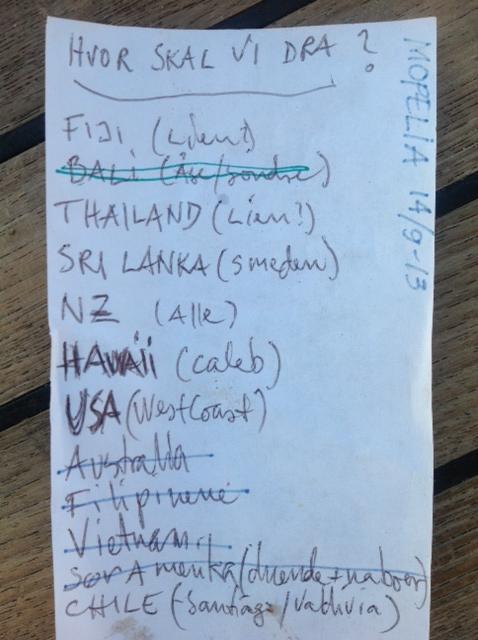 HVOR SKAL VI DRA ?
MOPELIA 14/9-13
FIJI (Lien!)
BALI (Åse/sondre)
THAILAND (Lien!)
SRI LANKA (Smeden)
NZ (Alle)
HAWAII (Caleb)
USA (WestCoast)
Australia
Filipinene
Vietnam
Sør Amerika (duende + naboer)
CHILE (Santiago/Valdivia)